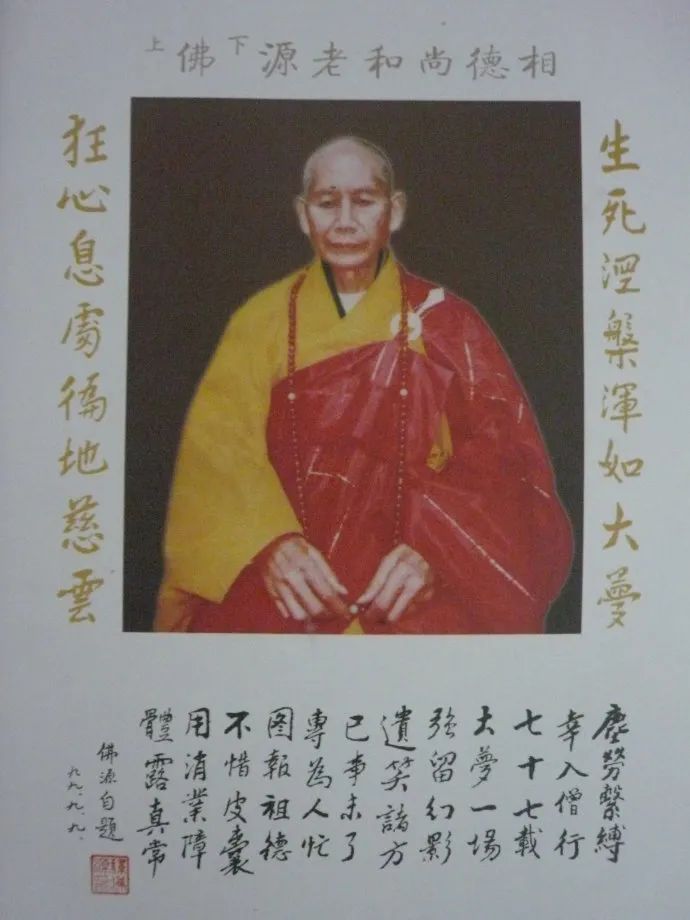 上佛下源老和尚德相
生死涅槃渾如大夢
狂心息處徧地慈雲
塵勞繫縛
幸入僧行
七十七載
大夢一場
強留幻影
遺笑諸方
己事未了
專為人忙
圖報祖德
不惜皮囊
用消業障
體露真常
佛源自題
九九.九.九.